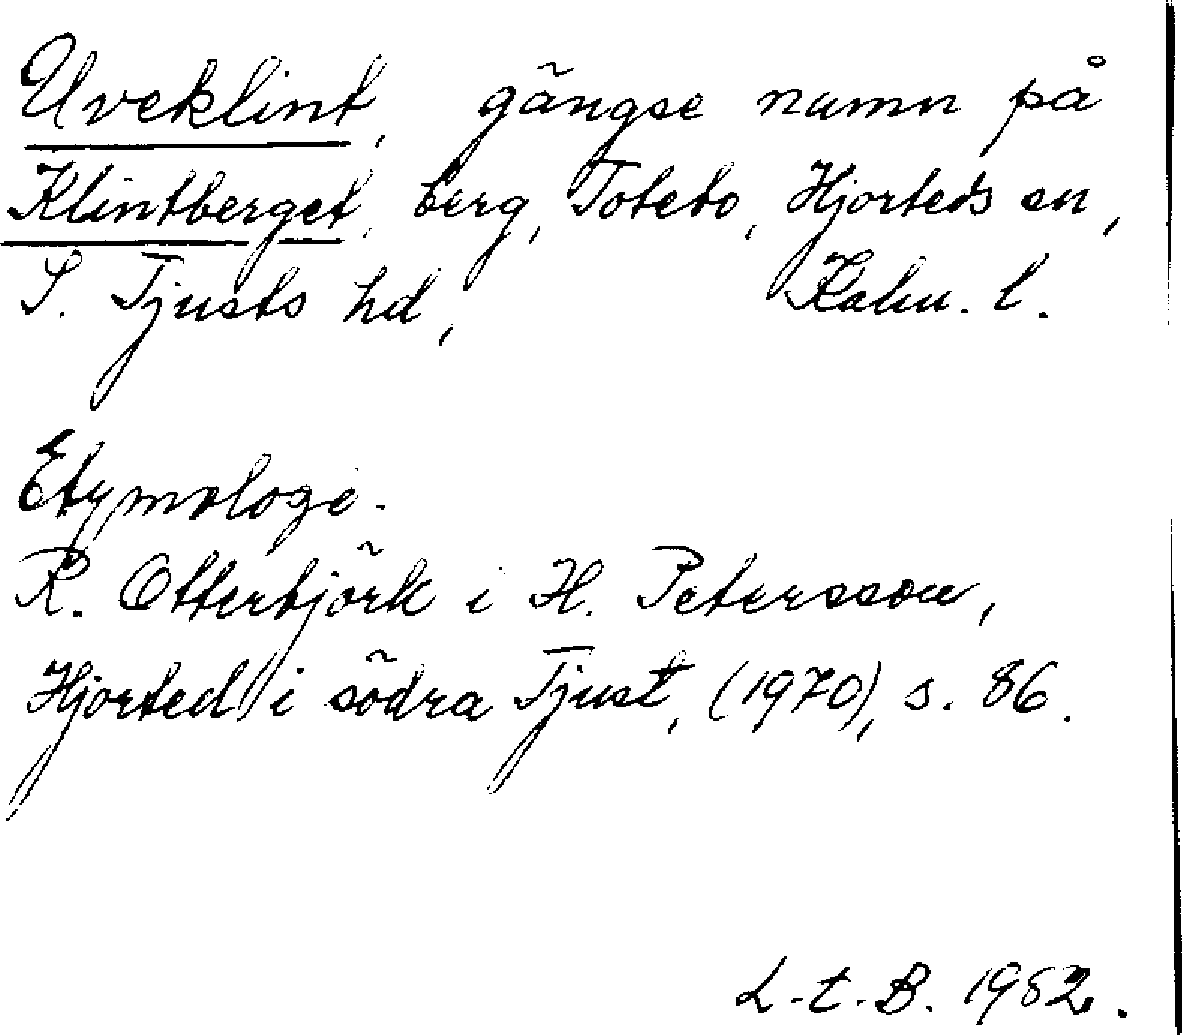 Uveklint, gängse namn på
Klintberget, berg, Totebo, Hjorteds sn,
S. Tjusts hd, Kalm. l.
Etymologi.
R. Otterbjörk i H. Petersson,
Hjorted i södra Tjust, (1970), s. 86.
L-E. B. 1982.